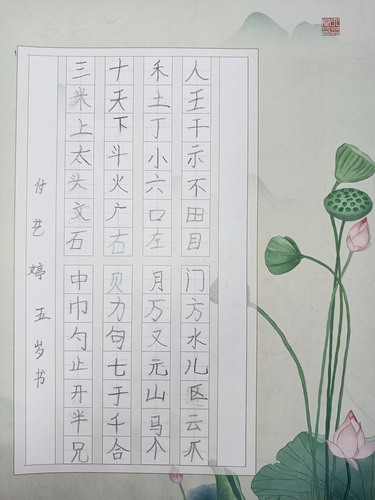 人王干示不田目门方水儿区云爪
禾土丁小六口左月万又元山马个
十天下斗火广右贝力句七于千合
三米上太头文石中巾勺止开半兄
付艺婷五岁书